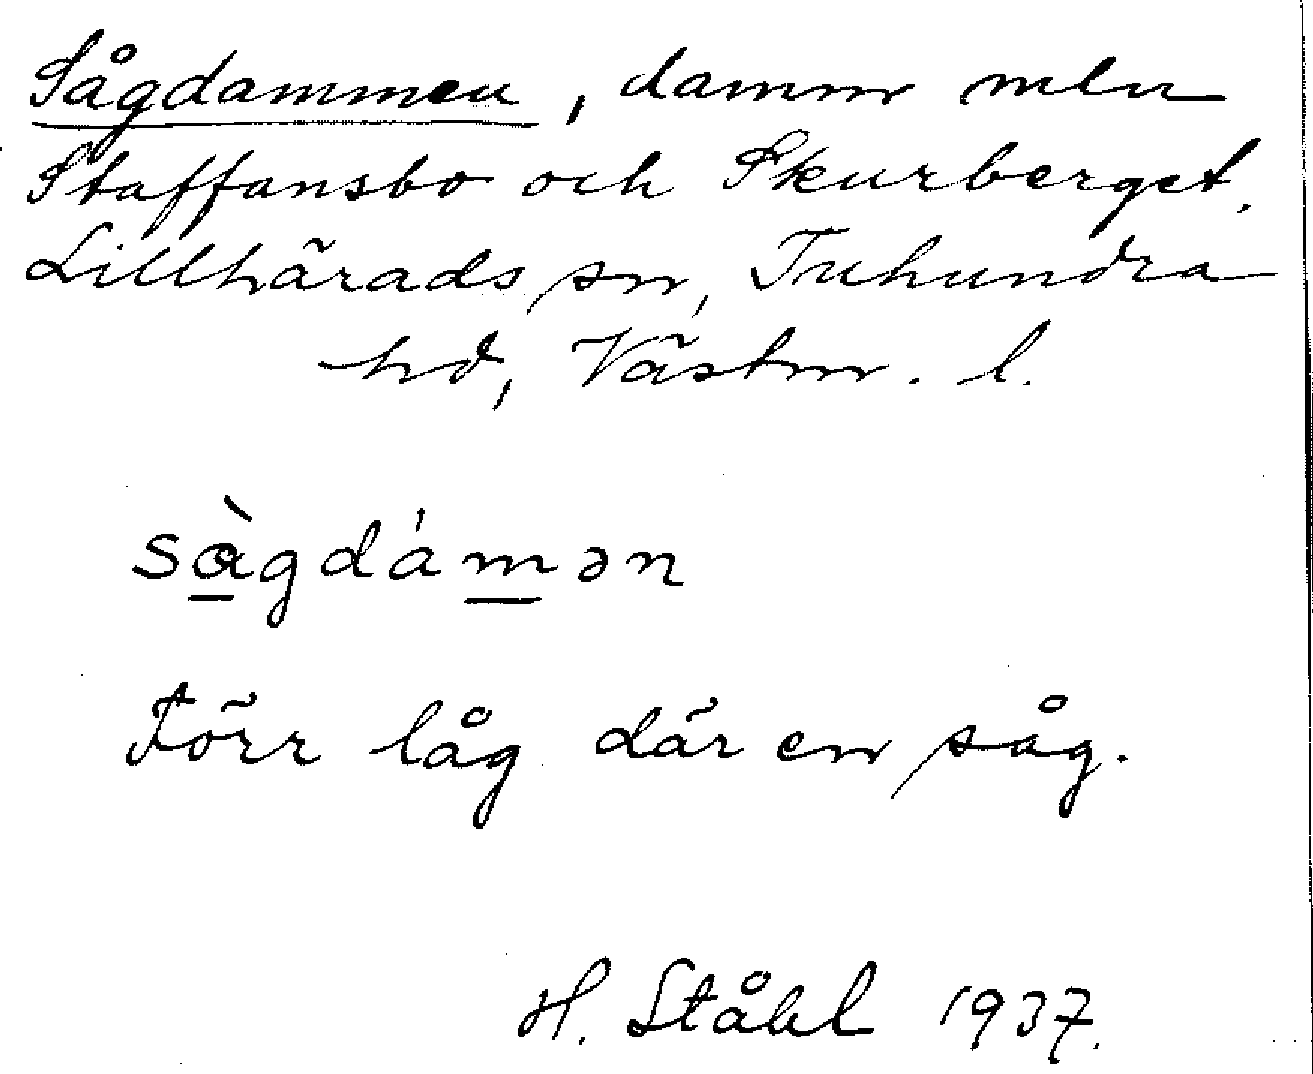 Sågdammen, damm mln
Staffansbo och Skurberget.
Lillhärads sn, Tuhundra
hd, Västm. l.
sàgdámən
Förr låg där en såg.
H. Ståhl 1937.